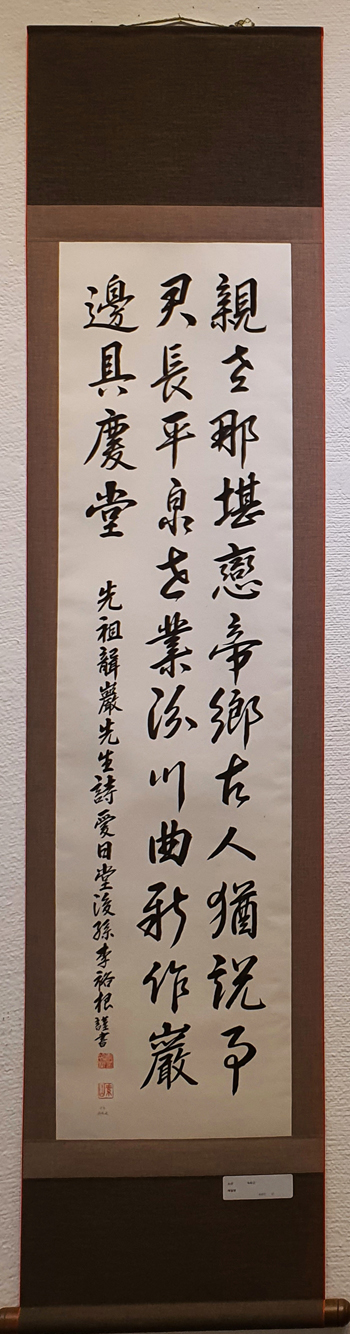 親老那堪戀帝鄉古人猶說事
君長平泉世業汾川曲新作巖
邊具慶堂
先祖聾巖先生詩愛日堂後孫李裕根謹書